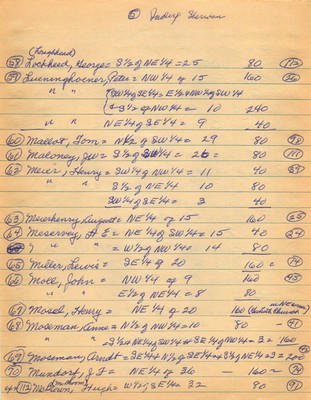 ⑤ Sherman
(Loughhead)
58 Lockhead, George = S½ of NE¼ = 25 80 112
59 Lueninghoener, Peter = NW¼ of 15 160 26
" " {SW¼ of SE¼ = E½ of NW¼ of SW¼
+ S½ of NW¼ = 10 240
NE¼ of SE¼ = 9 40
60 Mallat, Tom = N½ of SW¼ = 29 80 98
61 Maloney, JW = S½ of SW¼ = 26 = 80 111
62 Meier, Henry = SW¼ of NW¼ = 11 40 39
" " S½ of NW¼ 10 80
SW¼ of SE¼ = 3 40
63 Meierhenry, August = NE¼ of 15 160 25
64 Meservey, A E = NE¼ of SW¼ = 15 40 24
" " = W½ of NW¼ = 14 80
65 Miller, Lewis = SE¼ of 20 160 = 74
66 Moll, John = NW¼ of 9 160 43
" " E½ of NE¼ = 8 80
67 Mosel, Henry = NE¼ of 20 160
68 Moseman, = N½ of NW¼ = 10 80 - 41
160
69 Moseman, Arndt = SE¼ + = 200
70 Mundorf, J F = NE¼ of 36 - 160 = 74
112 Hugh = W½ of SE¼ = 32 80 91